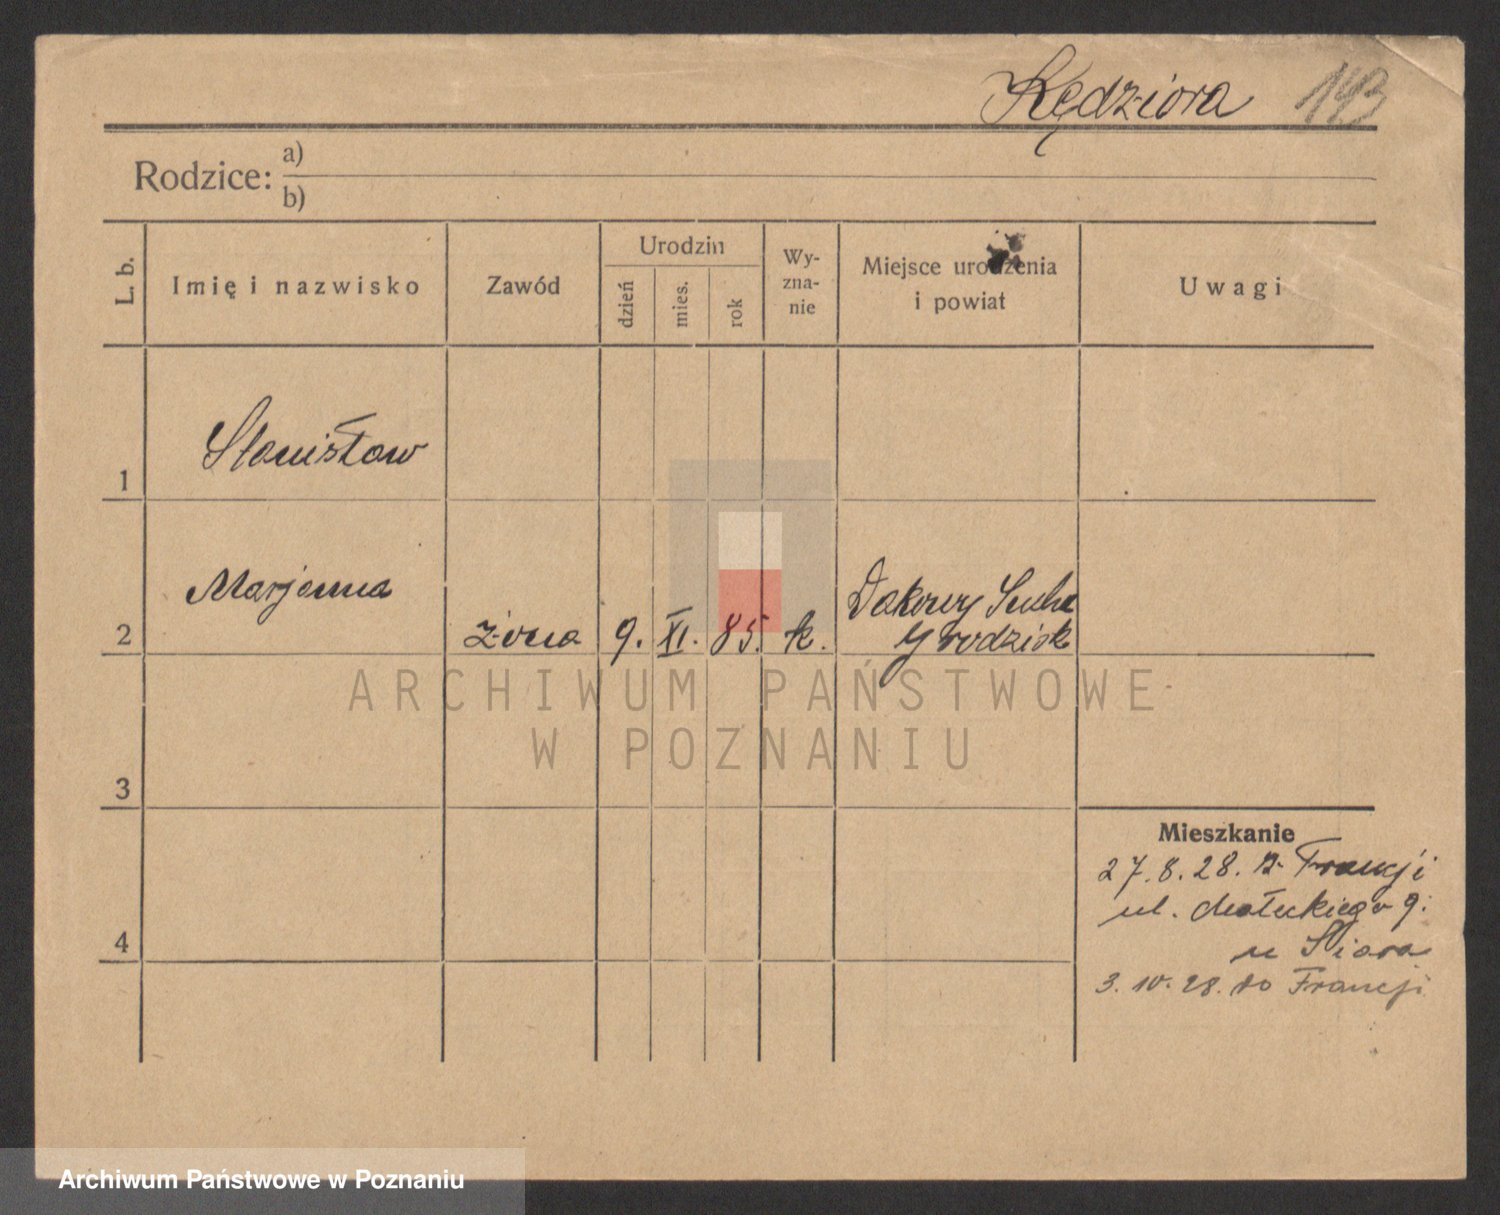 Kędziora 143
Rodzice: a)
b)
L. b. Imię i nazwisko Zawód Urodzin dzień mies. rok Wy-zna-nie Miejsce urodzenia i powiat Uwagi
1 Stanisław
2 Marjanna żona 9. XI. 85. k. Dakowy Suche
Grodzisk
ARCHIWUM PAŃSTWOWE
W POZNANIU
3
Mieszkanie
27.8.28. z Francji
ul. Małeckiego 9.
u
4
3.10.28. do Francji
Archiwum Państwowe w Poznaniu